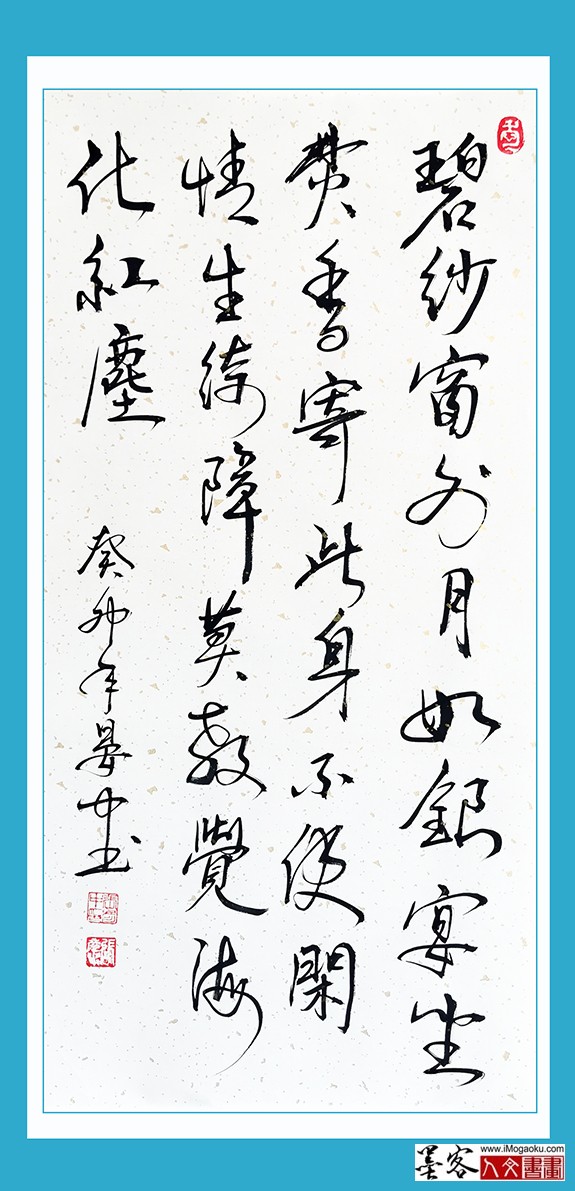 碧紗窗外月如銀宴坐
焚香寄此身不使閑
情生綺障莫教覺海
化紅塵
癸卯年晏書
墨客
www.iMogaoku.com
人文書畫